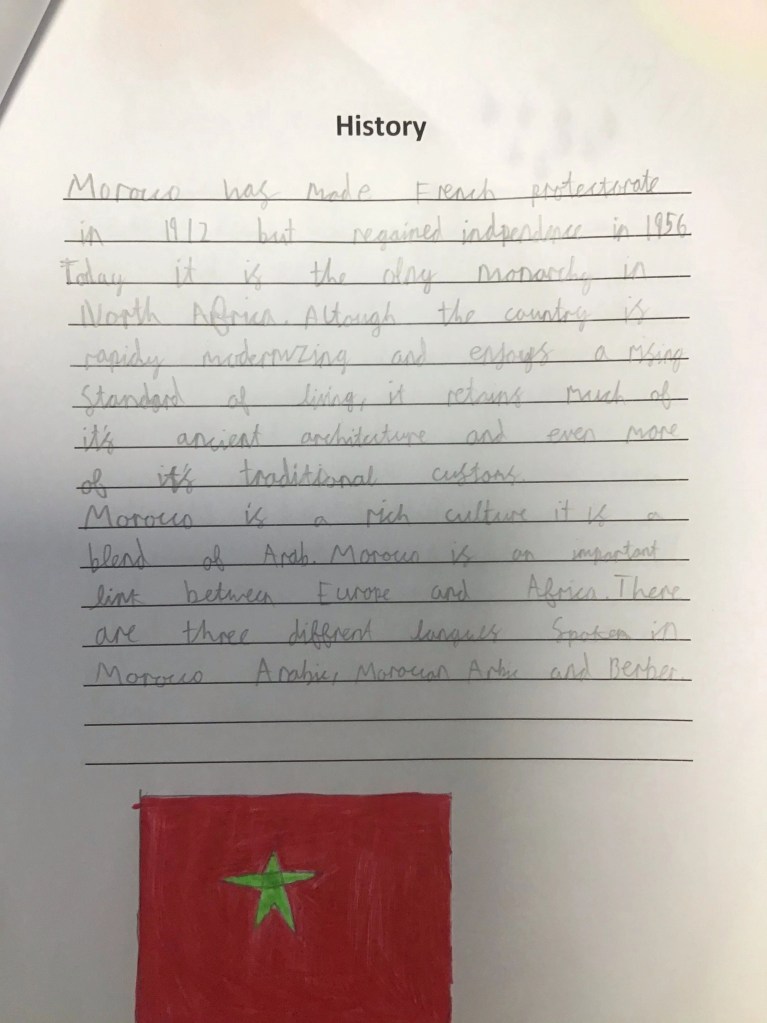 History
Morocco has made French protectorate
in 1912 but regained indpendence in 1956
Today it is the olny monarchy in
North Africa. Altough the country is
rapidy modernizing and enjoys a rising
Standard of living, it retains much of
it's ancient architecture and even more
of it's traditional customs.
Morocco is a rich culture it is a
blend of Arab. Morocco is an important
link between Europe and Africa. There
are three different langues Spoken in
Morocco Arabic, Moroccan Arbic and Berber.